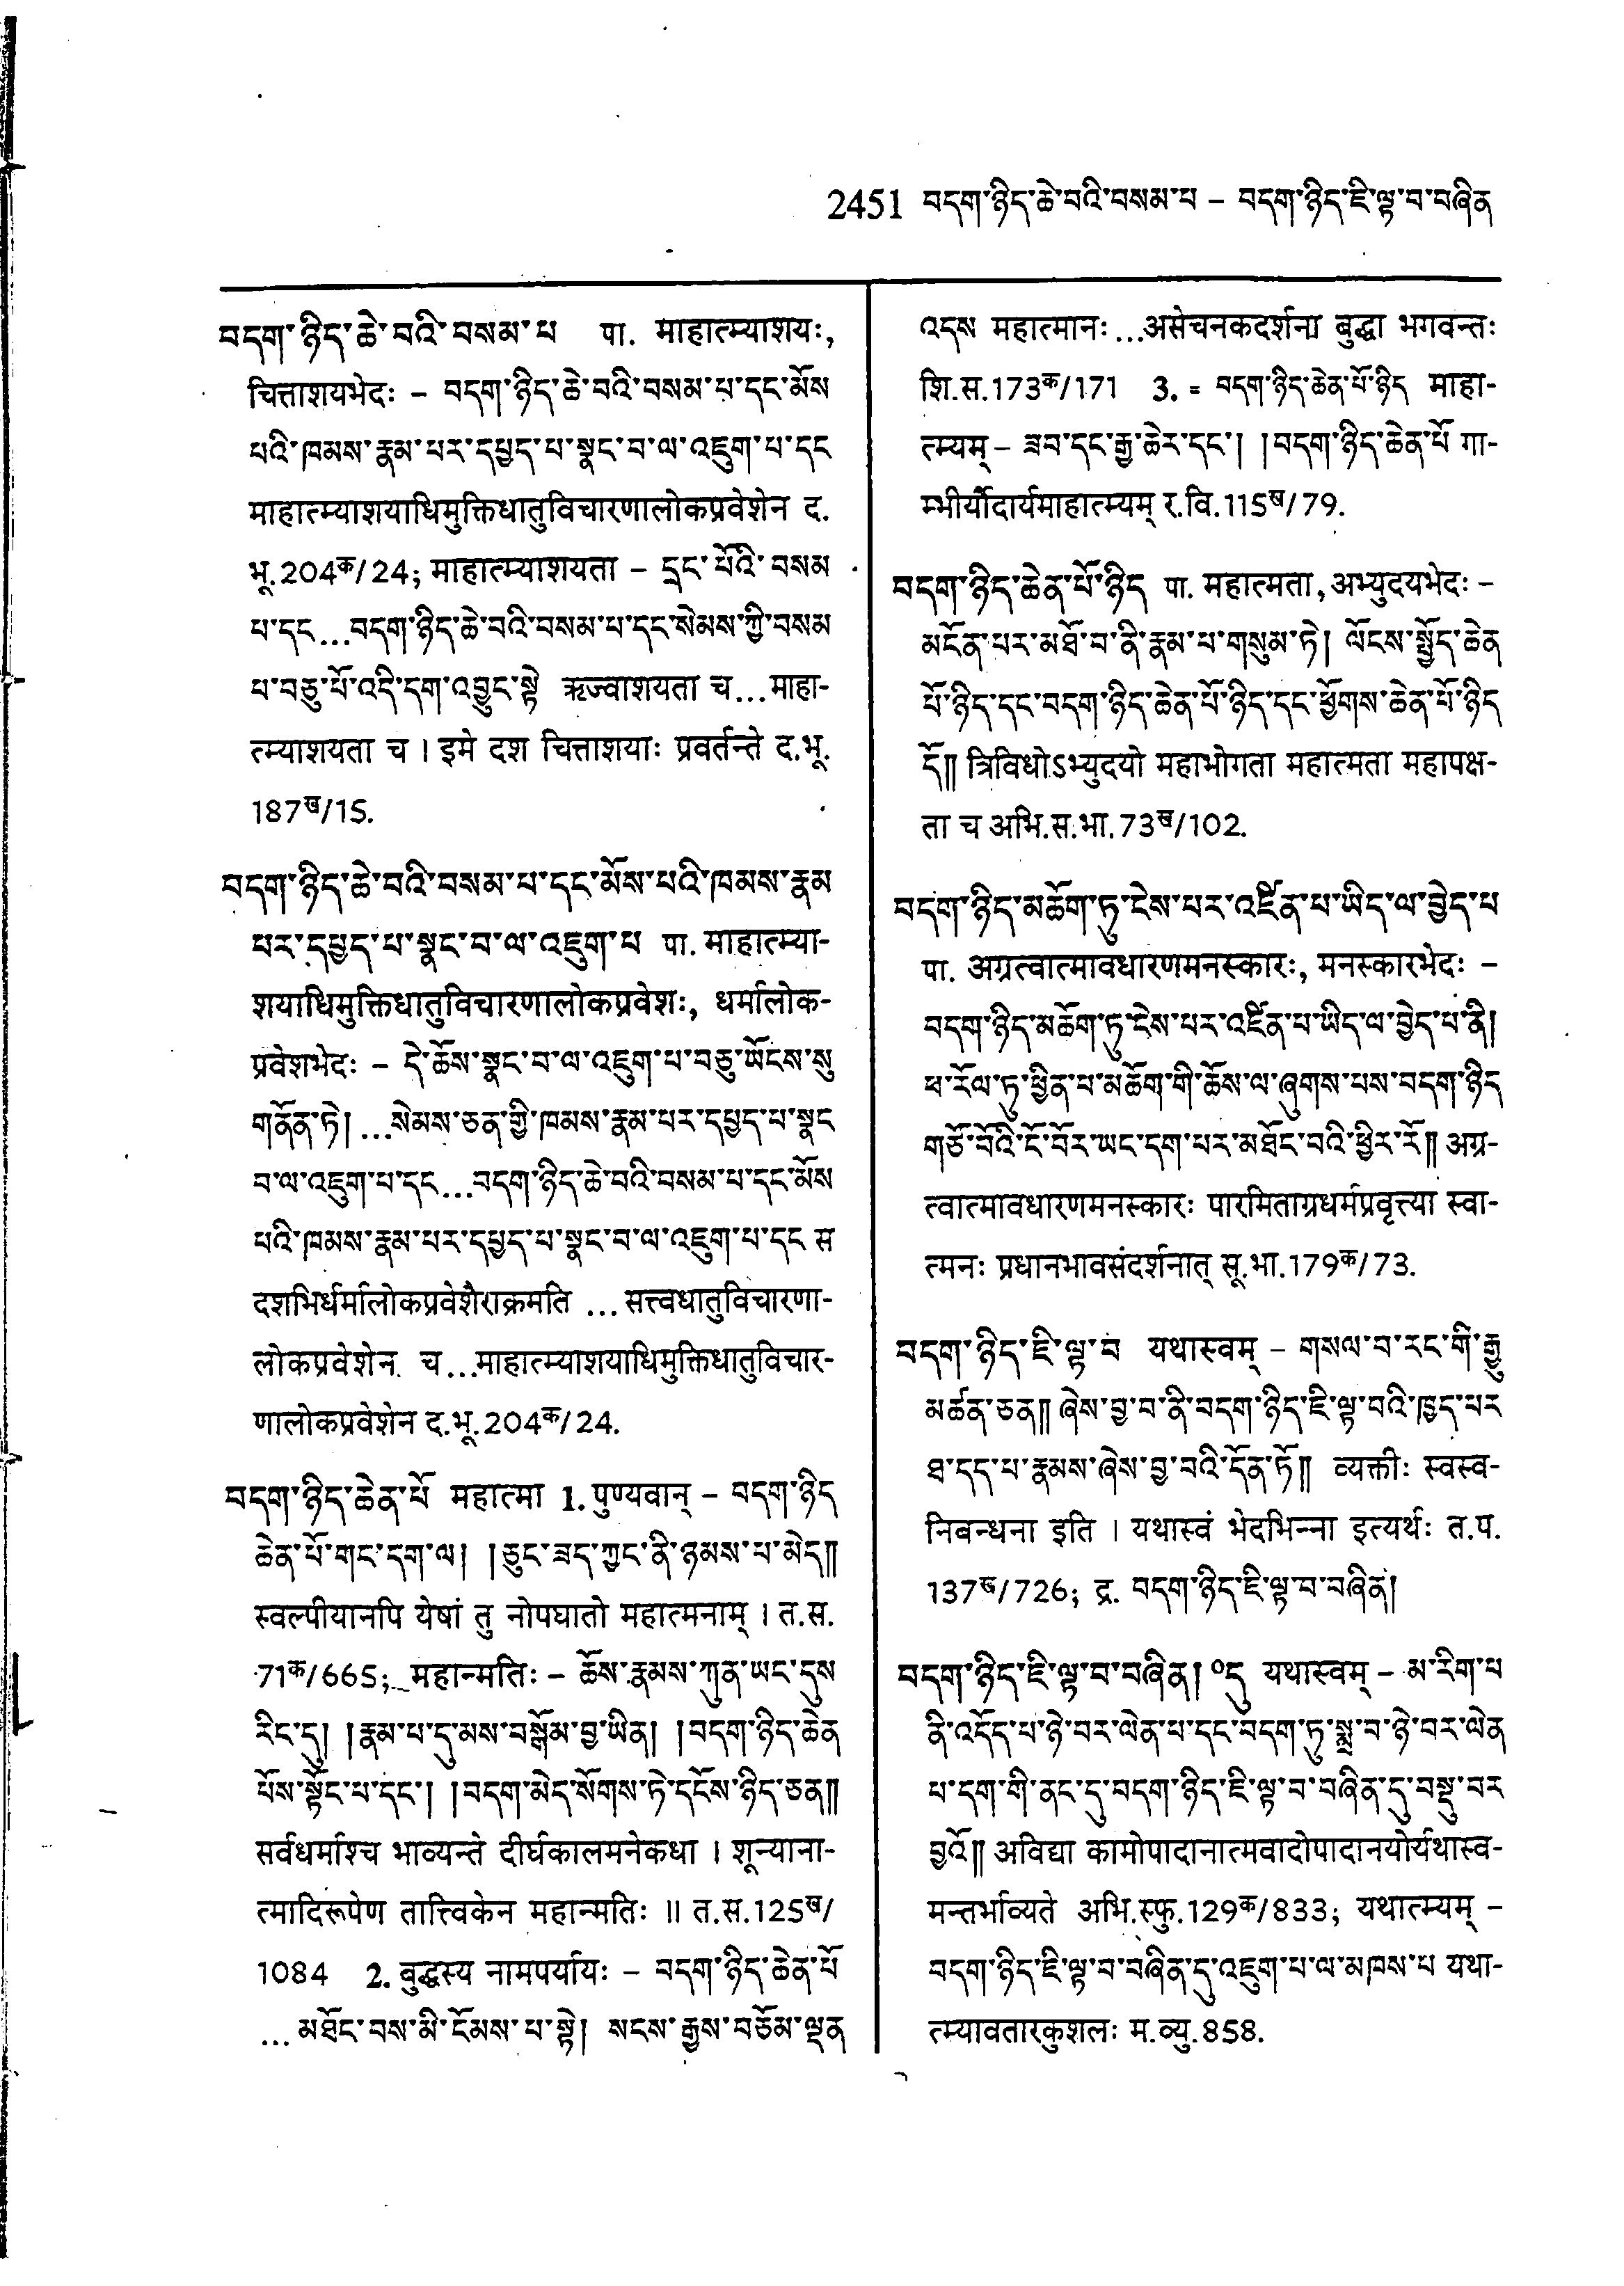 2451 བདག་ཉིད་ཆེ་བའི་བསམ་པ – བདག་ཉིད་ཇི་ལྟ་བ་བཞིན
བདག་ཉིད་ཆེ་བའི་བསམ་པ पा. माहात्म्याशयः,
चित्ताशयभेदः – བདག་ཉིད་ཆེ་བའི་བསམ་པ་དང་མོས
པའི་ཁམས་རྣམ་པར་དཔྱད་པ་སྣང་བ་ལ་འཇུག་པ་དང
माहात्म्याशयाधिमुक्तिधातुविचारणालोकप्रवेशेन द.
भू.204क/24; माहात्म्याशयता – དྲང་པོའི་བསམ
པ་དང...བདག་ཉིད་ཆེ་བའི་བསམ་པ་དང་སེམས་ཀྱི་བསམ
པ་བཅུ་པོ་འདི་དག་འབྱུང་སྟེ ऋज्वाशयता च...माहा-
त्म्याशयता च । इमे दश चित्ताशयाः प्रवर्तन्ते द.भू.
187ख/15.
བདག་ཉིད་ཆེ་བའི་བསམ་པ་དང་མོས་པའི་ཁམས་རྣམ
པར་དཔྱད་པ་སྣང་བ་ལ་འཇུག་པ पा. माहात्म्या-
शयाधिमुक्तिधातुविचारणालोकप्रवेशः, धर्मालोक-
प्रवेशभेदः – དེ་ཆོས་སྣང་བ་ལ་འཇུག་པ་བཅུ་ཡོངས་སུ
གནོན་ཏེ། ...སེམས་ཅན་གྱི་ཁམས་རྣམ་པར་དཔྱད་པ་སྣང
བ་ལ་འཇུག་པ་དང...བདག་ཉིད་ཆེ་བའི་བསམ་པ་དང་མོས
པའི་ཁམས་རྣམ་པར་དཔྱད་པ་སྣང་བ་ལ་འཇུག་པ་དང स
दशभिर्धर्मालोकप्रवेशैराक्रमति ... सत्त्वधातुविचारणा-
लोकप्रवेशेन च...माहात्म्याशयाधिमुक्तिधातुविचार-
णालोकप्रवेशेन द.भू.204क/24.
བདག་ཉིད་ཆེན་པོ महात्मा 1. पुण्यवान् – བདག་ཉིད
ཆེན་པོ་གང་དག་ལ། །ཅུང་ཟད་ཀྱང་ནི་ཉམས་པ་མེད༎
स्वल्पीयानपि येषां तु नोपघातो महात्मनाम् । त.स.
71क/665; महान्मतिः – ཆོས་རྣམས་ཀུན་ཡང་དུས
རིང་དུ། །རྣམ་པ་དུ་མས་བསྒོམ་བྱ་ཡིན། །བདག་ཉིད་ཆེན
པོས་སྟོང་པ་དང་། །བདག་མེད་སོགས་ཏེ་དངོས་ཉིད་ཅན༎
सर्वधर्माश्च भाव्यन्ते दीर्घकालमनेकधा । शून्याना-
त्मादिरूपेण तात्त्विकेन महान्मतिः ॥ त.स.125ख/
1084 2. बुद्धस्य नामपर्यायः – བདག་ཉིད་ཆེན་པོ
... མཐོང་བས་མི་ངོམས་པ་སྟེ། སངས་རྒྱས་བཅོམ་ལྡན
འདས महात्मानः ...असेचनकदर्शना बुद्धा भगवन्तः
शि.स.173क/171 3. = བདག་ཉིད་ཆེན་པོ་ཉིད माहा-
त्म्यम् – ཟབ་དང་རྒྱ་ཆེར་དང་། །བདག་ཉིད་ཆེན་པོ गा-
म्भीर्यौदार्यमाहात्म्यम् र.वि.115ख/79.
བདག་ཉིད་ཆེན་པོ་ཉིད पा. महात्मता, अभ्युदयभेदः –
མངོན་པར་མཐོ་བ་ནི་རྣམ་པ་གསུམ་ཏེ། ལོངས་སྤྱོད་ཆེན
པོ་ཉིད་དང་བདག་ཉིད་ཆེན་པོ་ཉིད་དང་ཕྱོགས་ཆེན་པོ་ཉིད
དོ༎ त्रिविधोऽभ्युदयो महाभोगता महात्मता महापक्ष-
ता च अभि.स.भा.73ख/102.
བདག་ཉིད་མཆོག་ཏུ་ངེས་པར་འཛིན་པ་ཡིད་ལ་བྱེད་པ
पा. अग्रत्वात्मावधारणमनस्कारः, मनस्कारभेदः –
བདག་ཉིད་མཆོག་ཏུ་ངེས་པར་འཛིན་པ་ཡིད་ལ་བྱེད་པ་ནི།
ཕ་རོལ་ཏུ་ཕྱིན་པ་མཆོག་གི་ཆོས་ལ་ཞུགས་པས་བདག་ཉིད
གཙོ་བོའི་ངོ་བོར་ཡང་དག་པར་མཐོང་བའི་ཕྱིར་རོ༎ अग्र-
त्वात्मावधारणमनस्कारः पारमिताग्रधर्मप्रवृत्त्या स्वा-
त्मनः प्रधानभावसंदर्शनात् सू.भा.179क/73.
བདག་ཉིད་ཇི་ལྟ་བ यथास्वम् – གསལ་བ་རང་གི་རྒྱུ
མཚན་ཅན༎ ཞེས་བྱ་བ་ནི་བདག་ཉིད་ཇི་ལྟ་བའི་ཁྱད་པར
ཐ་དད་པ་རྣམས་ཞེས་བྱ་བའི་དོན་ཏོ༎ व्यक्तीः स्वस्व-
निबन्धना इति । यथास्वं भेदभिन्ना इत्यर्थः त.प.
137ख/726; द्र. བདག་ཉིད་ཇི་ལྟ་བ་བཞིན།
བདག་ཉིད་ཇི་ལྟ་བ་བཞིན། ०དུ यथास्वम् – མ་རིག་པ
ནི་འདོད་པ་ཉེ་བར་ལེན་པ་དང་བདག་ཏུ་སྨྲ་བ་ཉེ་བར་ལེན
པ་དག་གི་ནང་དུ་བདག་ཉིད་ཇི་ལྟ་བ་བཞིན་དུ་བསྡུ་བར
བྱའོ༎ अविद्या कामोपादानात्मवादोपादानयोर्यथास्व-
मन्तर्भाव्यते अभि.स्फु.129क/833; यथात्म्यम् –
བདག་ཉིད་ཇི་ལྟ་བ་བཞིན་དུ་འཇུག་པ་ལ་མཁས་པ यथा-
त्म्यावतारकुशलः म.व्यु.858.